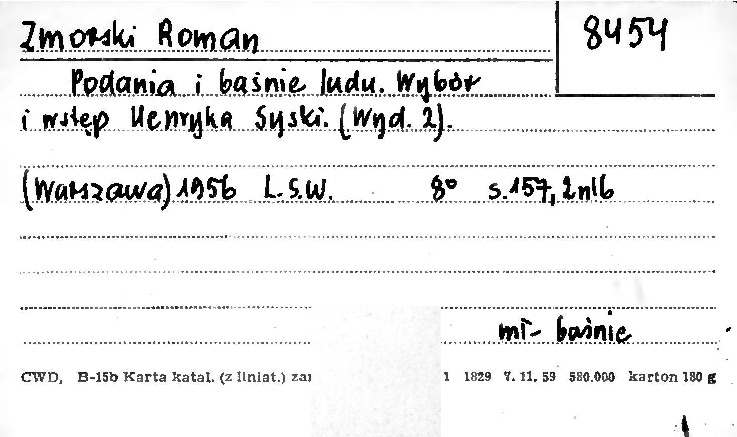 Zmorski Roman 8454
Podania i baśnie ludu. Wybór
i wstęp Henryka Syski. (Wyd. 2).
(Warszawa) 1956 L.S.W. 8° s. 157, 2 nlb
mł- baśnie
CWD, B-15b Karta katal. (z liniat.) 1 1829 7. 11. 53 580.000 karton 180 g